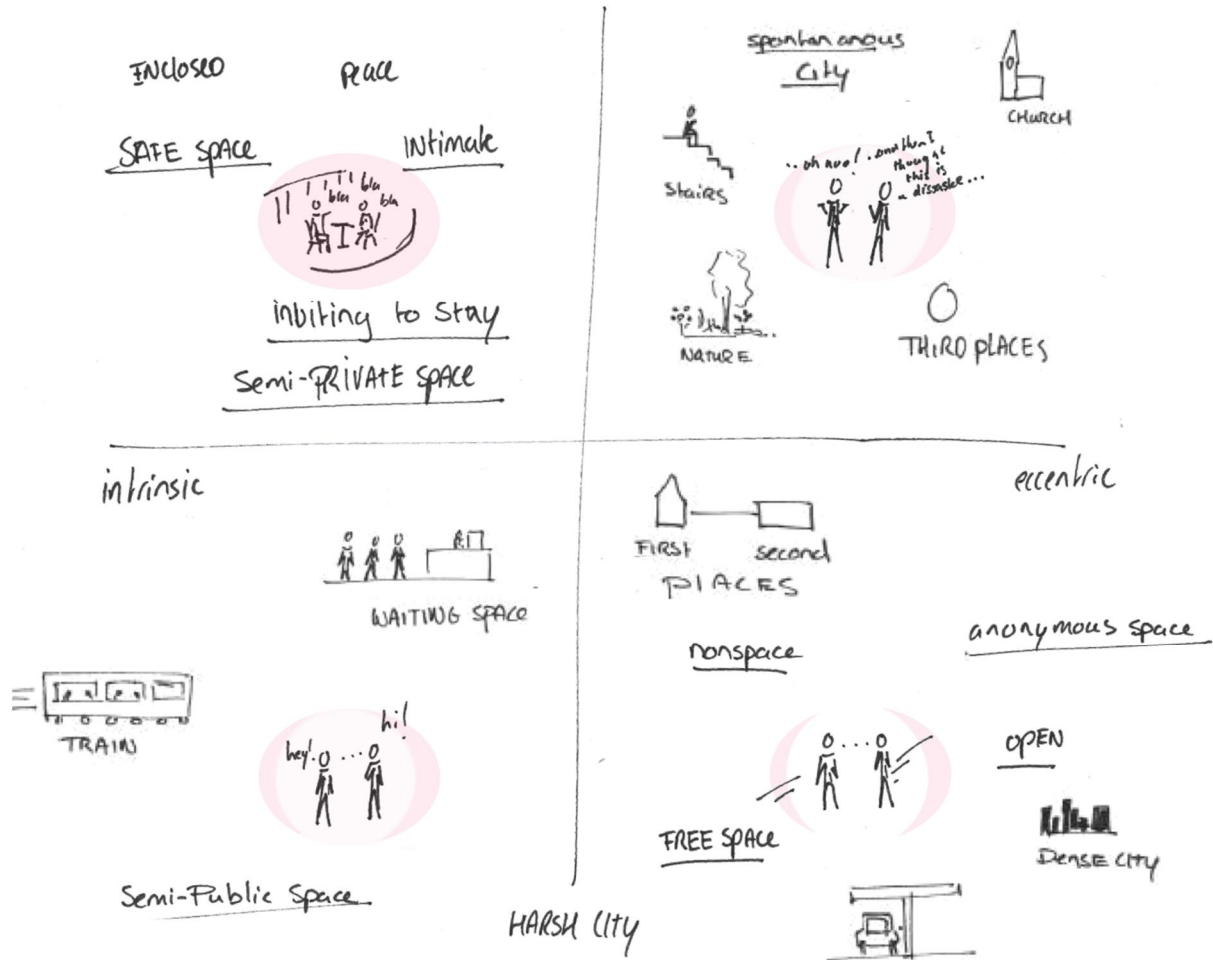 ENCLOSED
Peace
SAFE SPACE
INtimate
bla
bla
bla
inbiting to stay
Semi-PRIVATE SPACE
spontananous
City
CHURCH
Stairs
..oh noo!
..and then I
thought
this is
a dissaske...
NATURE
THIRD PLACES
intrinsic
eccentric
WAITING SPACE
TRAIN
hey!
...
hi!
Semi-Public Space
FIRST
second
PLACES
nonspace
anonymous space
...
OPEN
FREE SPACE
DENSE CITY
HARSH CITY